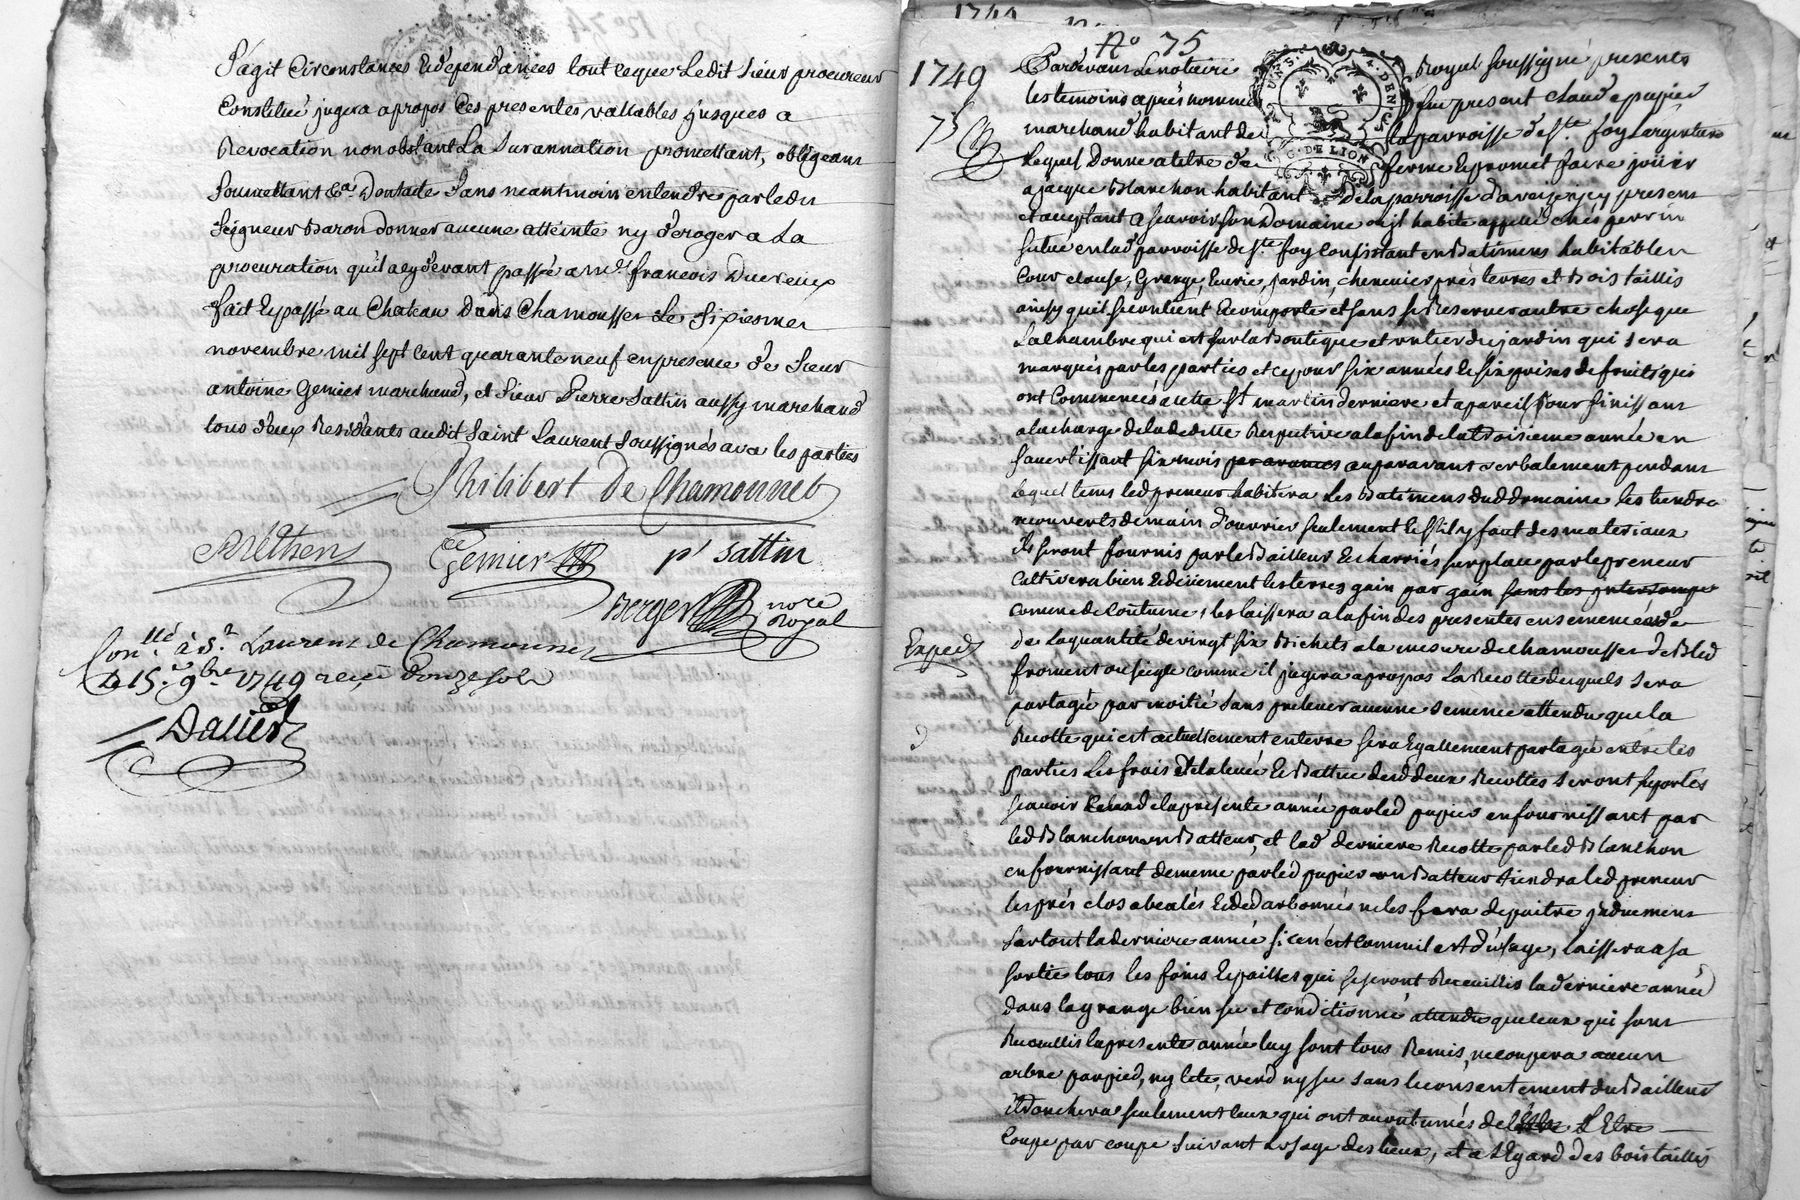 s'agit Circonstances & dependances tout ce que Ledit sieur procureur
Constitué jugera a propos Ces presentes vallables jusques a
Revocation nonobstant La surannation promettant, obligeant
soumettant &a. sans neantmoin entendre par ledit
seigneur Baron donner aucune atteinte ny deroger a La
procuration qu'il a cy devant passée a Me. francois
fait & passé au Chateau dudit Chamousset Le sixiesme
novembre mil sept cent quarante neuf en presence de sieur
antoine Gemier marchand, et sieur Pierre sattin aussy marchand
tous deux Residants audit saint Laurent soussignés avec les parties
Philibert de Chamousset
Gemier p' sattin
Berger nore
Royal
Conllé à St. Laurent de Chamousset
Le 15e. 9bre 1749 reçu douze sols
Dalier
1749
No 75
1749
75
Pardevant Le notaire Royal soussigné presents
les temoins après nommés fut present claude pupier
marchand habitant de la parroisse de ste foy Largentiere
Lequel Donne a titre de ferme & promet faire jouir
a jacque Blanchon habitant de la parroisse d'aveizejey present
et acceptant a scavoir son Domaine ou il habite appellé chés perrin
situé en lad parroisse de ste. foy Consistant en Batimens habitables
Cour close, Grange, Ecurie, jardin, chenevier près terres et Bois taillis
ainsy quil se contient & comporte et sans se Reserver autre chose que
La chambre qui est sur la Boutique et un tier du jardin qui sera
marqués par les parties et ce pour six années & six prises de fruits qui
ont Commencés a fête St martin derniere et a pareil jour finissant
a la charge de la dedite Respective a la fin de la troisieme année en
s'avertissant six mois auparavant verbalement pendant
lequel tems led preneur habitera Les Batimens dud domaine les tiendra
recouverts de main d'ouvrier seulement & s'il y faut des materiaux
ils seront fournis par le Bailleur & charriés sur place par le preneur
Cultivera bien & duement les terres gain par gain sans les interrompre
comme de coutume, les laissera a la fin des presentes ensemencés
de La quantité de vingt six Bichets a la mesure de Chamousset de Bled
Exped
froment ou seigle comme il jugera a propos La Recolte desquels sera
partagée par moitié sans prelever aucune semence attendu que la
Recolte qui est actuellement en terre sera Egallement partagée entre les
parties Les frais de la levée & Battue desd deux Recoltes seront suportés
scavoir de la presente année par led pupier en fournissant par
led Blanchon un Batteur, et lad derniere Recolte par led Blanchon
en fournissant de meme par led pupier un Batteur tiendra led preneur
les prés clos & ne les fera depaitre
sur tout la derniere année si ce n'est comme il est d'usage, laissera a sa
sortie tous les foins & pailles qui se seront Recueillis la derniere année
dans la grange bien sec et conditionné attendu que ceux qui sont
Recueillis la presente année luy sont tous Remis, ne coupera aucun
arbre par pied, ny tête, verd ny sec sans le consentement du Bailleur
seulement ceux qui ont accoutumés de L'Etre
Coupe par coupe suivant L'usage des lieux, et a L'Egard des bois taillis